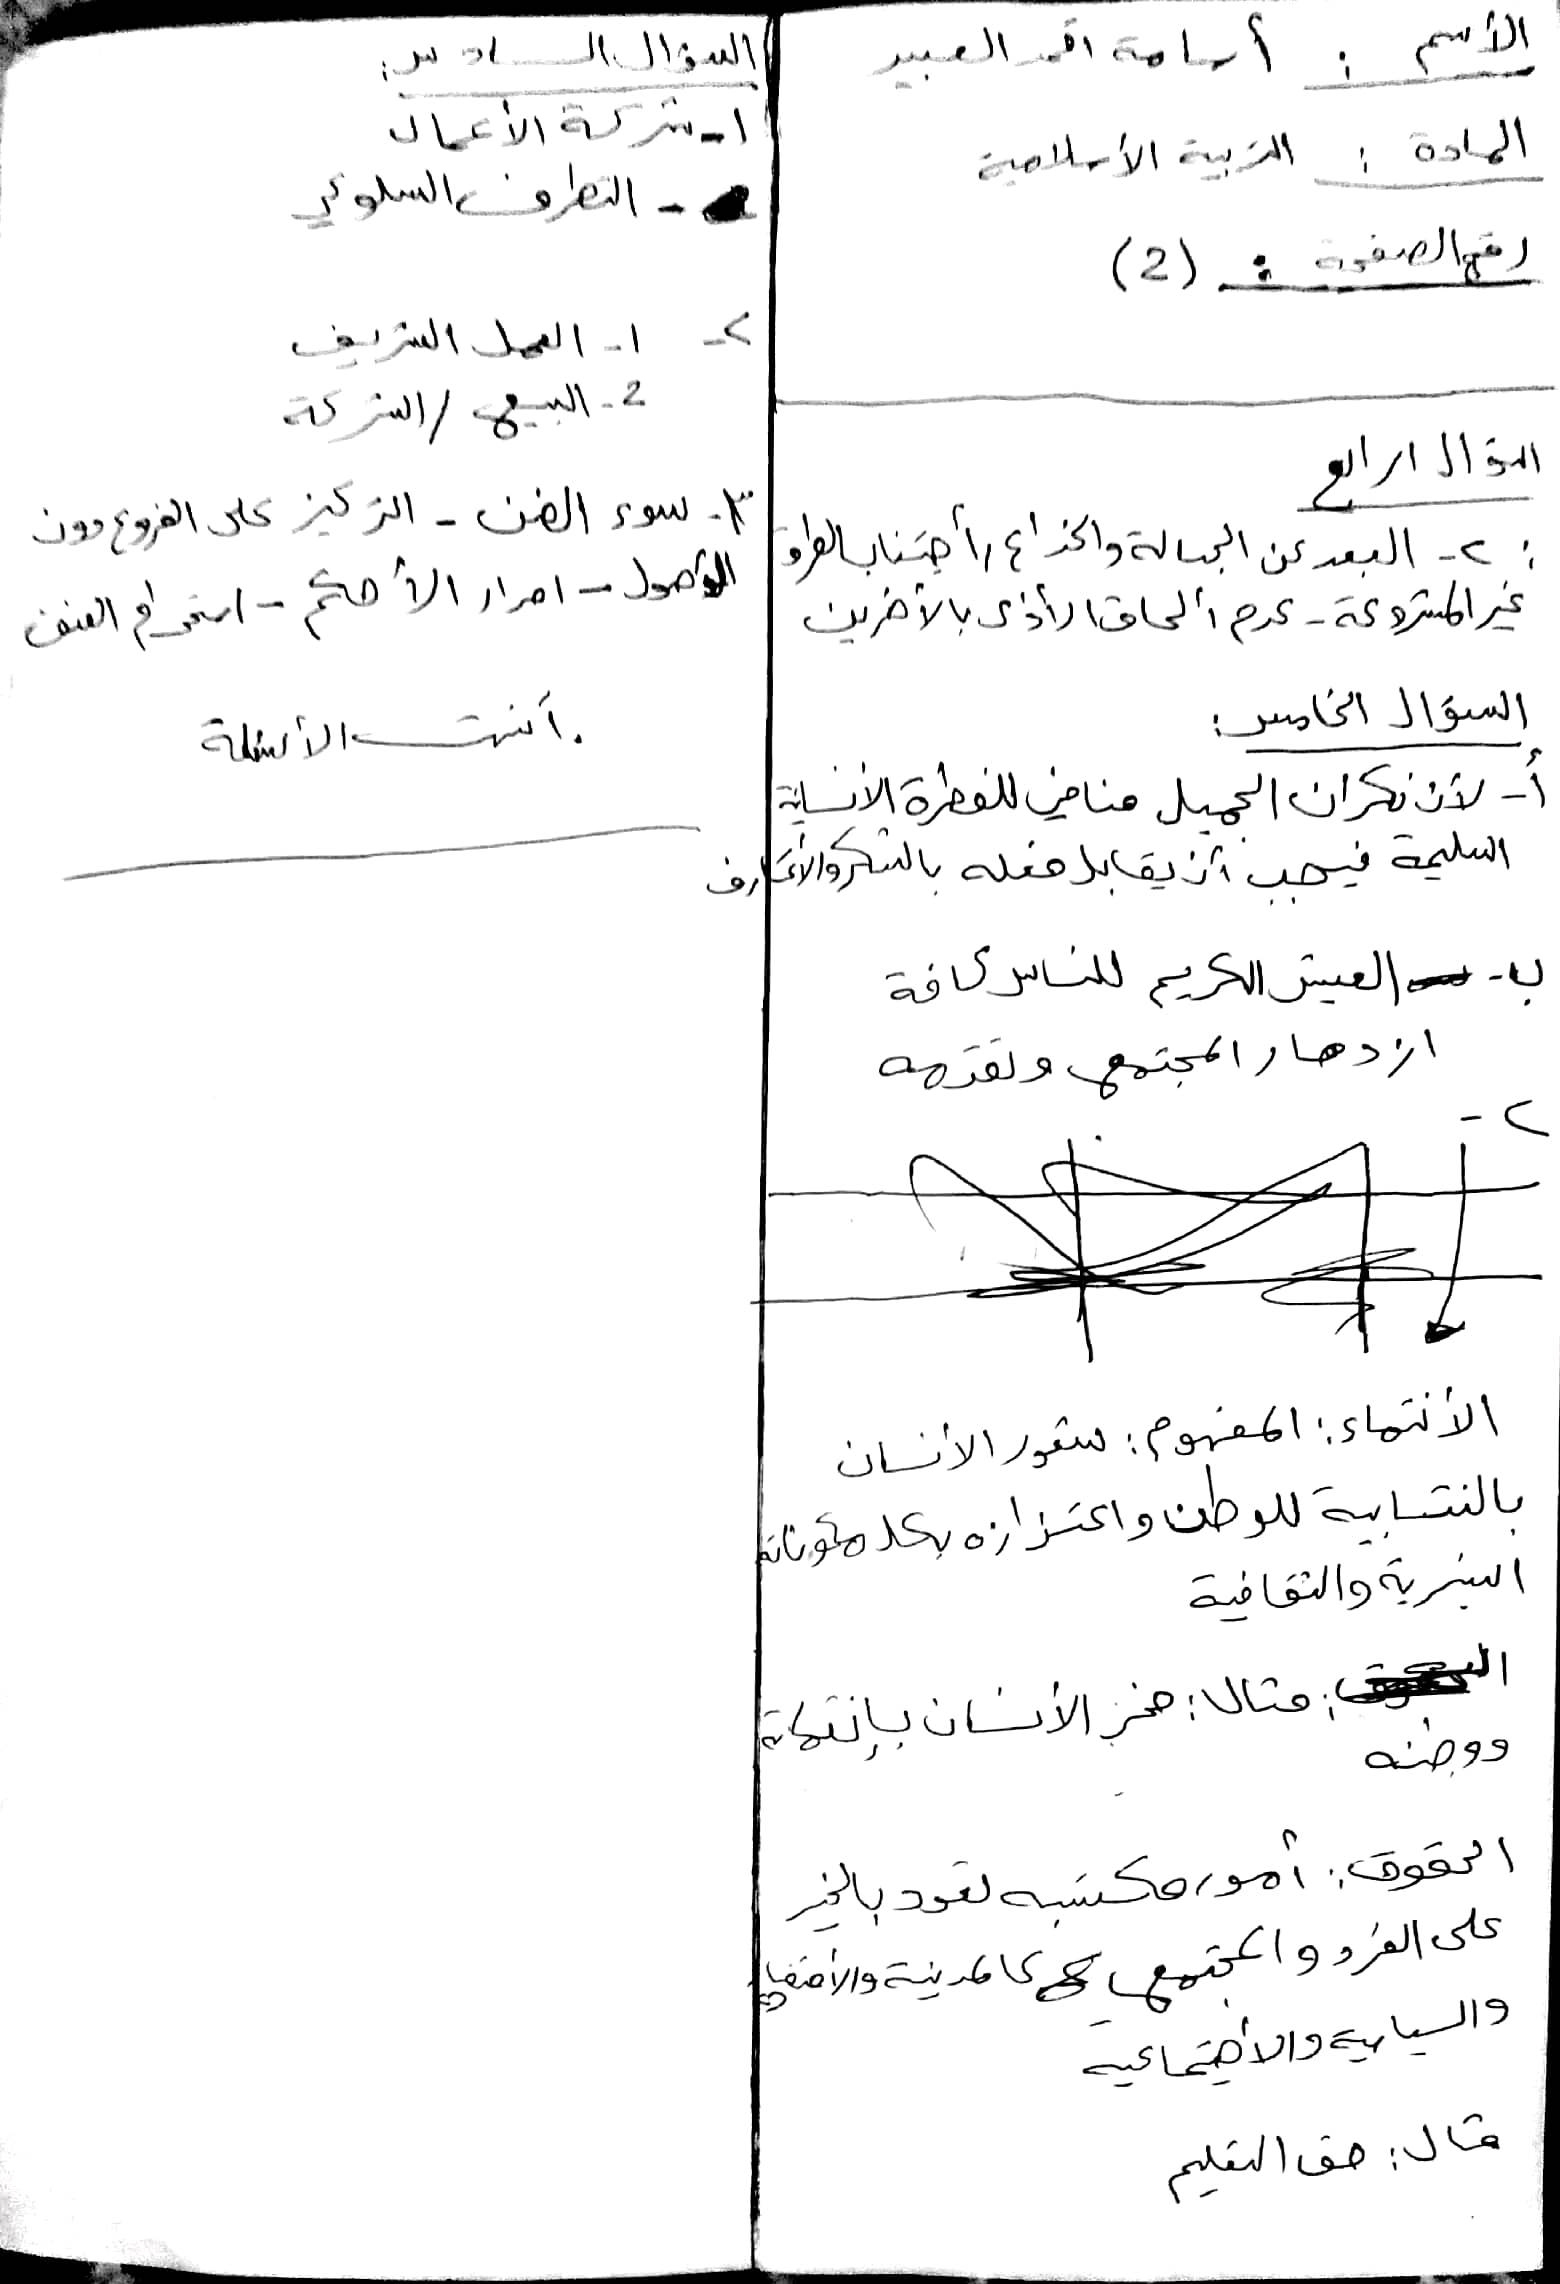 الأسم : أسامة احمد العبيد
المادة : التربية الأسلامية
رقم الصفحة : (2)
السؤال الرابع
: ٢- البعد عن الجهالة والخداع / أجتناب الطرق
غير المشروعة - عدم ألحاق الأذى بالأخرين
السؤال الخامس :
أ- لأن نكران الجميل منافي للفطرة الأنسانية
السليمة فيجب أن يقابل فعله بالشكر والأعتراف
ب- العيش الكريم للناس كافة
ازدهار المجتمع وتقدمه
٢-
الأنتماء : المفهوم : شعور الأنسان
بالنتسابية للوطن واعتزازه بكل مكوناته
البشرية والثقافية
مثال : فخر الأنسان بإنتمائه
ووطنه
الحقوق : أمور مكتسبه تعود بالخير
على الفرد والمجتمع كالمدنية والأقتصادية
والسياسية والأجتماعية
مثال : حق التعليم
السؤال السادس :
١- شركة الأعمال
- التطرف السلوكي
٢- ١- العمل الشريف
2- البيع / الشركة
٣- سوء الضن - التركيز على الفروع دون
الأصول - اصدار الأحكم - استخدام العنف
. أنتهت الأسئلة